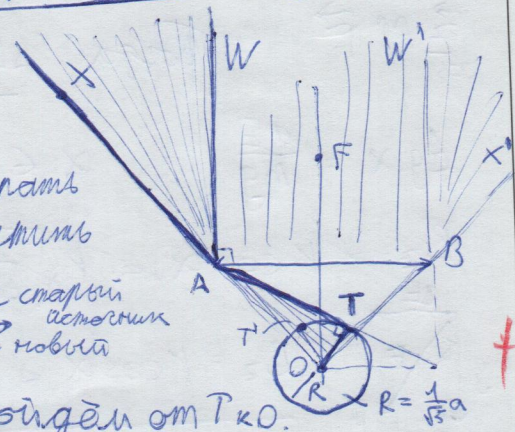 X
W
W'
F
X'
A
B
старый
источник
новый
T'
T
O
R
R = 1/√5 a
ойдём от T к O.